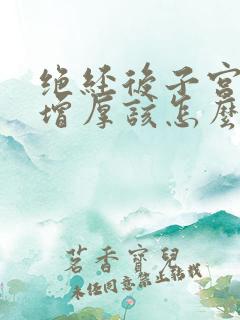 绝经后子宫
增厚该怎么
茗香宝儿
未经同意禁止转载